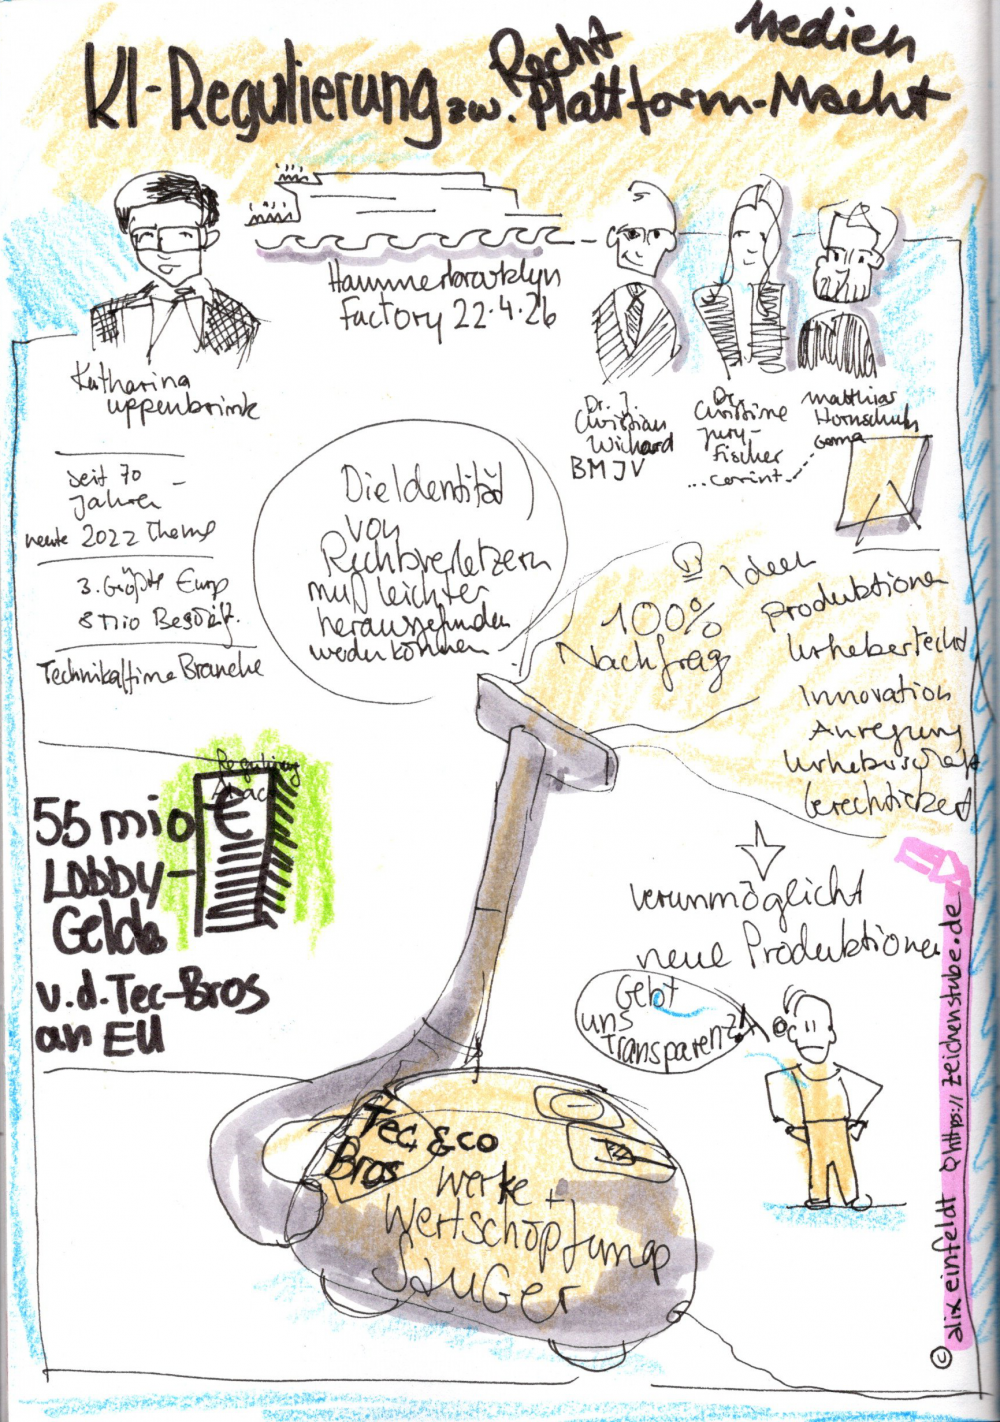 Medien
Recht
KI-Regulierung zw. Plattform-Macht
Hammerbrooklyn
Factory 22.4.26
Katharina
uppenbrink
Dr. J.
Christian
Wichard
BMJV
Dr.
Christine
Jury-
Fischer
...corint...
matthias
Hornschuh
Gema
seit 70
Jahren -
heute 2022 Thema
3. Größte Europ
8 Mio Beschäft.
Technikaffine Branche
Die Identität
von
Rechtsverletzern
muß leichter
herausgefunden
werden können
100%
Nachfrag
Ideen
Produktionen
Urheberrecht
Innovation
Anregung
berechtigt
verunmöglicht
neue Produktionen
Gebt
uns
Transparenz!
€
55 mio
Lobby-
Gelder
v.d. Tec-Bros
an EU
Tec & co
Bros
Werke +
Wertschöpfung
Sauger
© alix einfeldt https://zeichenstube.de